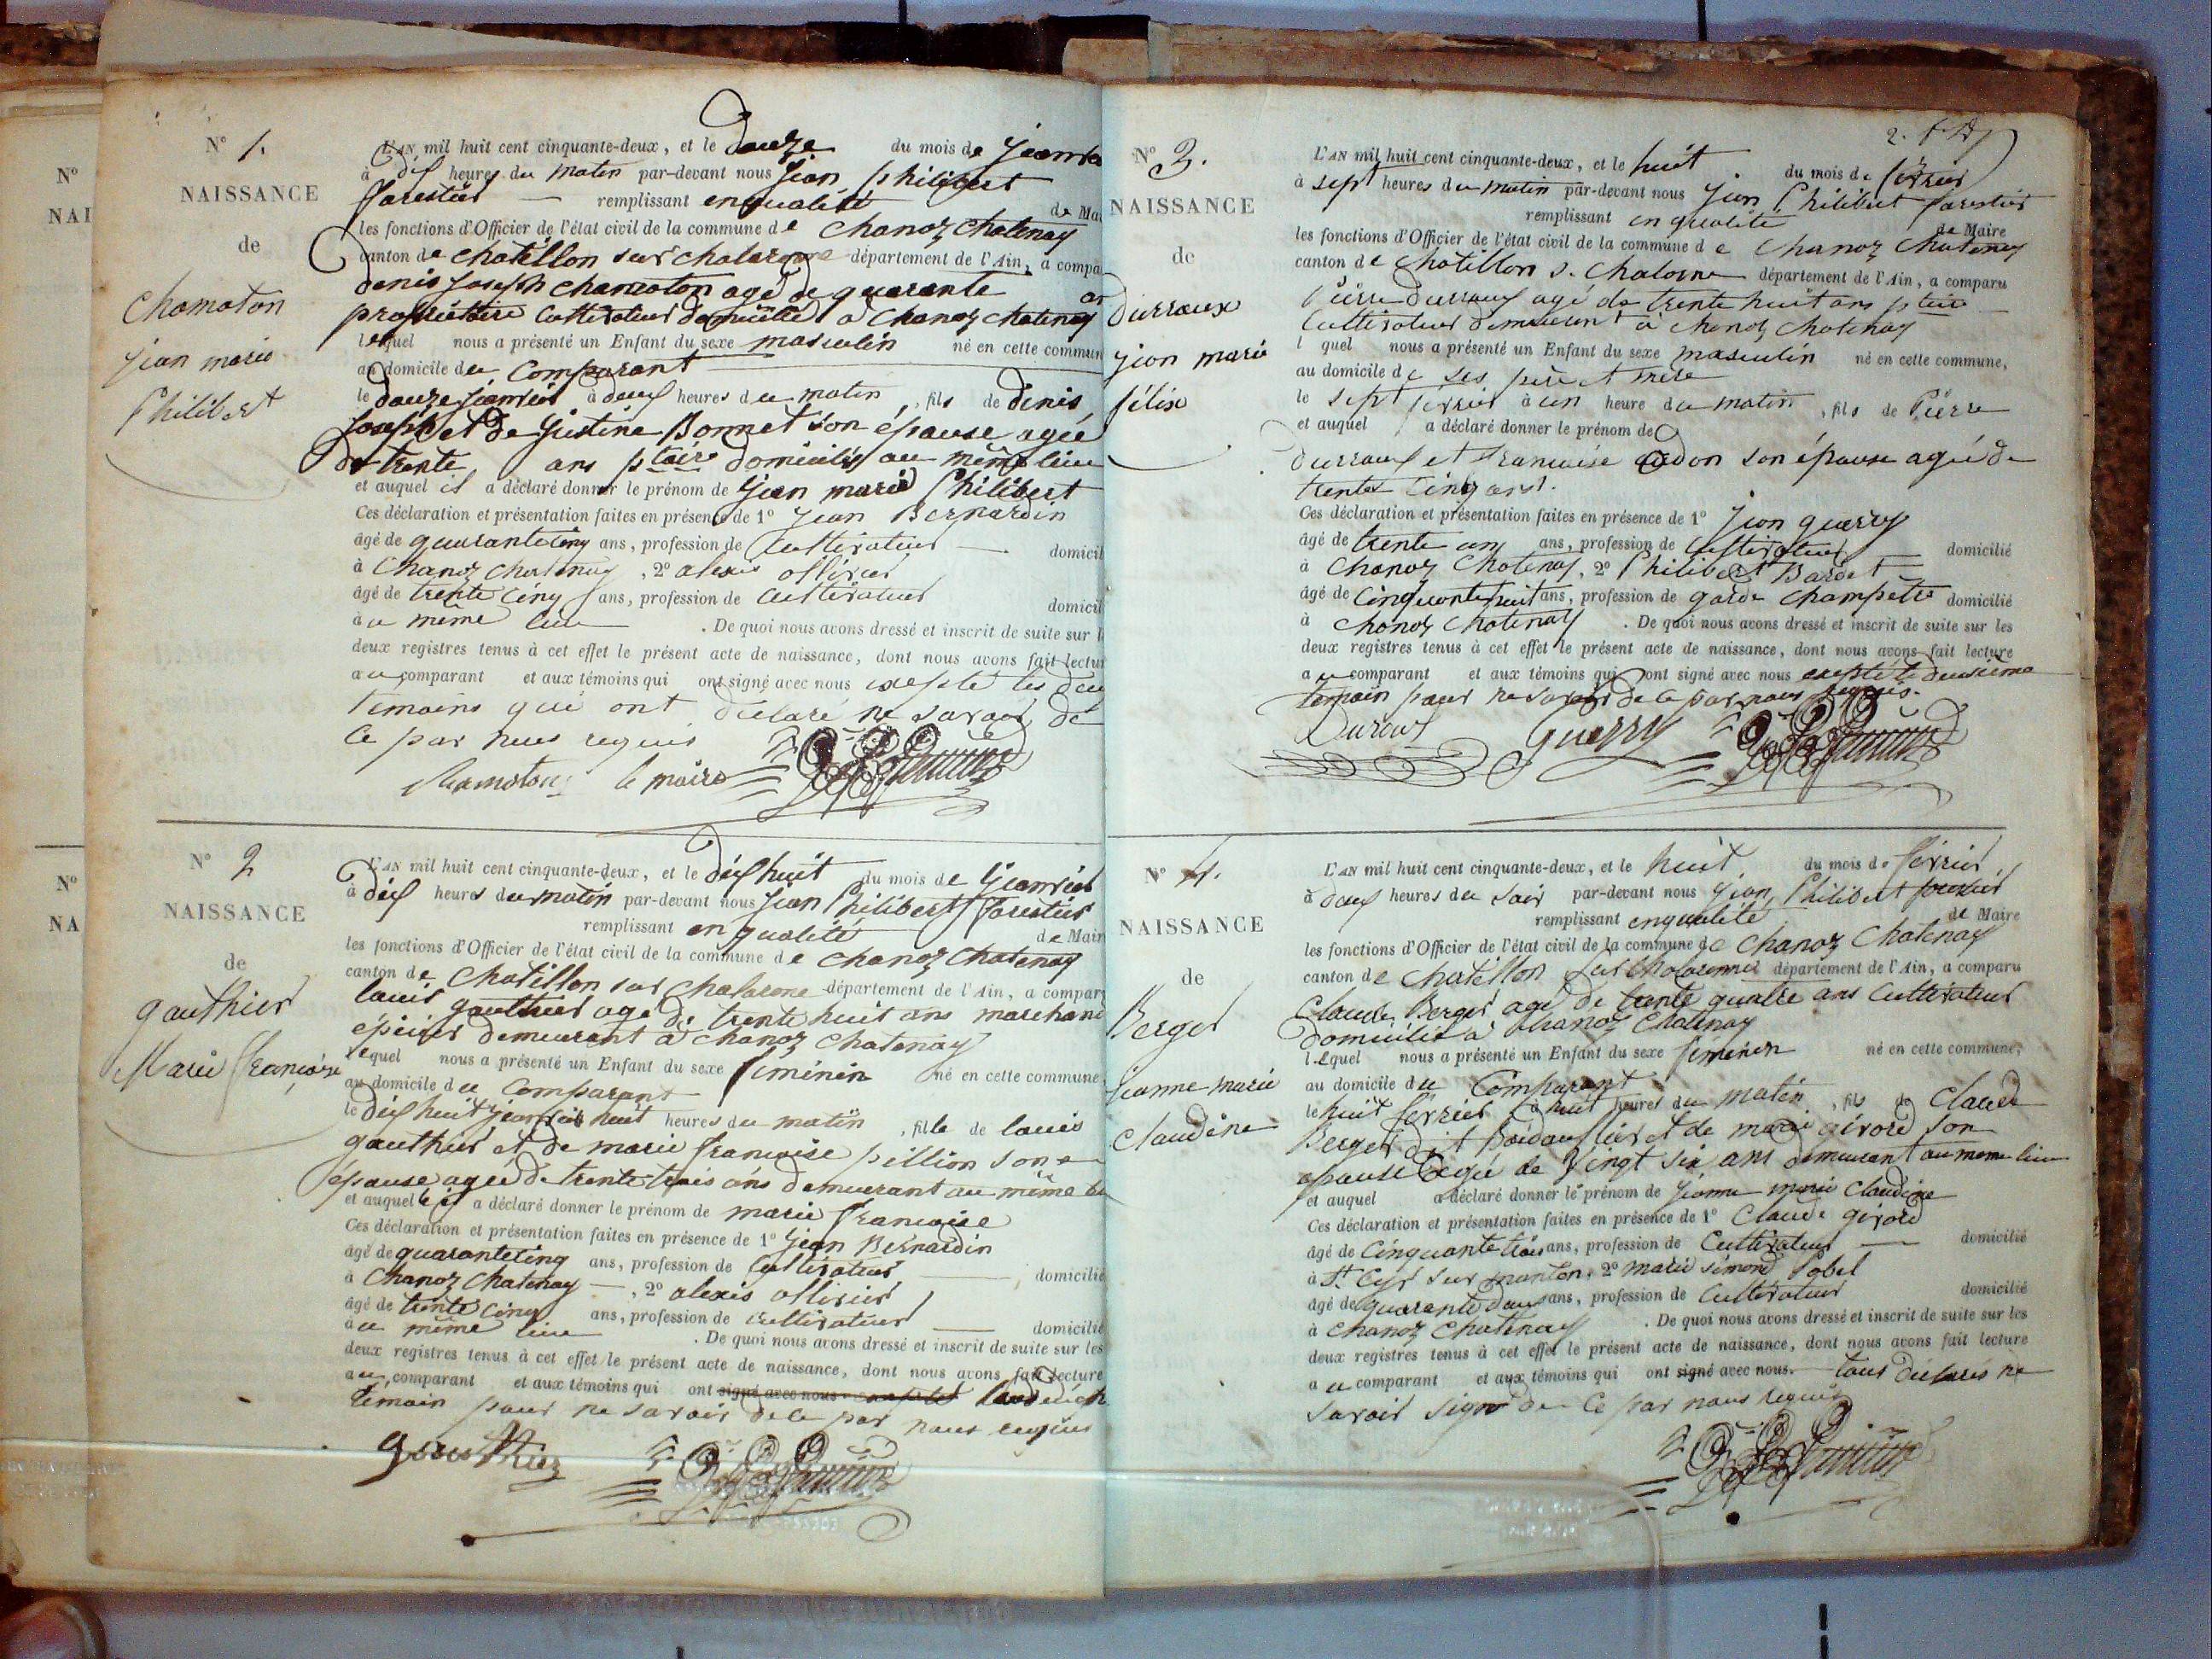 N°
NAI
N°
NA
N° 1.
NAISSANCE
de
Chamoton
jean marie
Philibert
L'AN mil huit cent cinquante-deux, et le douze du mois de janvier
à dix heures du matin par-devant nous jean philibert
forestier remplissant en qualité de Mai
les fonctions d'Officier de l'état civil de la commune de chanoz chatenay
canton de chatillon sur chalaronne département de l'Ain, a compa
denis joseph chamoton agé de quarante an
propriétaire Cultivateur domicilié à chanoz chatenay
lequel nous a présenté un Enfant du sexe masculin né en cette commun
au domicile du Comparant
le douze janvier à deux heures du matin, fils de denis
joseph et de justine Bonnet son épouse agée
de trente ans ptaire domiciliés au même lieu
et auquel il a déclaré donner le prénom de jean marie Philibert
Ces déclaration et présentation faites en présence de 1° jean Bernardin
âgé de quarante cinq ans, profession de Cultivateur domicil
à Chanoz chatenay, 2° alexis ollivier
âgé de trente cinq ans, profession de Cultivateur domicil
au même lieu. De quoi nous avons dressé et inscrit de suite sur l
deux registres tenus à cet effet le présent acte de naissance, dont nous avons fait lectur
au comparant et aux témoins qui ont signé avec nous excepté les deu
témoins qui ont déclaré ne savoir de
Ce par nous requis
Chamoton le maire
N° 2
NAISSANCE
de
gauthier
Marie françoise
L'AN mil huit cent cinquante-deux, et le dix huit du mois de janvier
à dix heures du matin par-devant nous jean Philibert forestier
remplissant en qualité de Mair
les fonctions d'Officier de l'état civil de la commune de chanoz chatenay
canton de chatillon sur chalarone département de l'Ain, a compar
louis gauthier age de trente huit ans marchand
épicier demeurant à chanoz chatenay
lequel nous a présenté un Enfant du sexe féminin né en cette commune
au domicile du Comparant
le dix huit janvier huit heures du matin, fille de louis
gauthier et de marie francoise pillion son
épouse agée de trente trois ans demeurant au même lieu
et auquel il a déclaré donner le prénom de marie francoise
Ces déclaration et présentation faites en présence de 1° jean Bernardin
âgé de quarante cinq ans, profession de Cultivateur domicilié
à chanoz chatenay, 2° alexis ollivier
âgé de trente cinq ans, profession de cultivateur domicilié
au même lieu. De quoi nous avons dressé et inscrit de suite sur les
deux registres tenus à cet effet le présent acte de naissance, dont nous avons fait lecture
au comparant et aux témoins qui ont signé avec nous
témoin pour ne savoir de ce par nous requis
gauthier
N° 3.
NAISSANCE
de
durroux
jean marie
félix
L'AN mil huit cent cinquante-deux, et le huit du mois de février
à sept heures du matin par-devant nous jean Philibert forestier
remplissant en qualité de Maire
les fonctions d'Officier de l'état civil de la commune de Chanoz Chatenay
canton de chatillon s. chalarone département de l'Ain, a comparu
Pierre durroux agé de trente huit ans ptaire
Cultivateur demeurant à chanoz chatenay
l quel nous a présenté un Enfant du sexe masculin né en cette commune,
au domicile de ses père et mère
le sept février à un heure du matin, fils de Pierre
et auquel a déclaré donner le prénom de
durroux et francoise son épouse agée de
trente cinq ans.
Ces déclaration et présentation faites en présence de 1° jean guerry
âgé de trente ans, profession de Cultivateur domicilié
à Chanoz Chatenay, 2° Philibert Bardet
âgé de cinquante huit ans, profession de garde champêtre domicilié
à chanoz chatenay. De quoi nous avons dressé et inscrit de suite sur les
deux registres tenus à cet effet le présent acte de naissance, dont nous avons fait lecture
au comparant et aux témoins qui ont signé avec nous excepté le deuxième
temoin pour ne savoir de ce par nous requis.
Duroux guerry
N° 4.
NAISSANCE
de
Berger
jeanne-marie
claudine
L'AN mil huit cent cinquante-deux, et le huit du mois de février
à deux heures du soir par-devant nous jean Philibert forestier
remplissant en qualité de Maire
les fonctions d'Officier de l'état civil de la commune de Chanoz Chatenay
canton de chatillon sur chalaronne département de l'Ain, a comparu
Claude Berger agé de trente quatre ans Cultivateur
domicilié à chanoz Chatenay
lequel nous a présenté un Enfant du sexe féminin né en cette commune,
au domicile du Comparant
le huit février à huit heures du matin, fils de Claude
Berger dit et de marie girord son
epouse agée de vingt six ans demeurant au meme lieu
et auquel a déclaré donner le prénom de jeanne marie Claudine
Ces déclaration et présentation faites en présence de 1° Claude girord
âgé de cinquante trois ans, profession de Cultivateur domicilié
à St. Cyr sur manton, 2° marie simond
âgé de quarante deux ans, profession de Cultivateur domicilié
à chanoz chatenay. De quoi nous avons dressé et inscrit de suite sur les
deux registres tenus à cet effet le présent acte de naissance, dont nous avons fait lecture
au comparant et aux témoins qui ont signé avec nous. tous déclarés ne
savoir signer de ce par nous requis